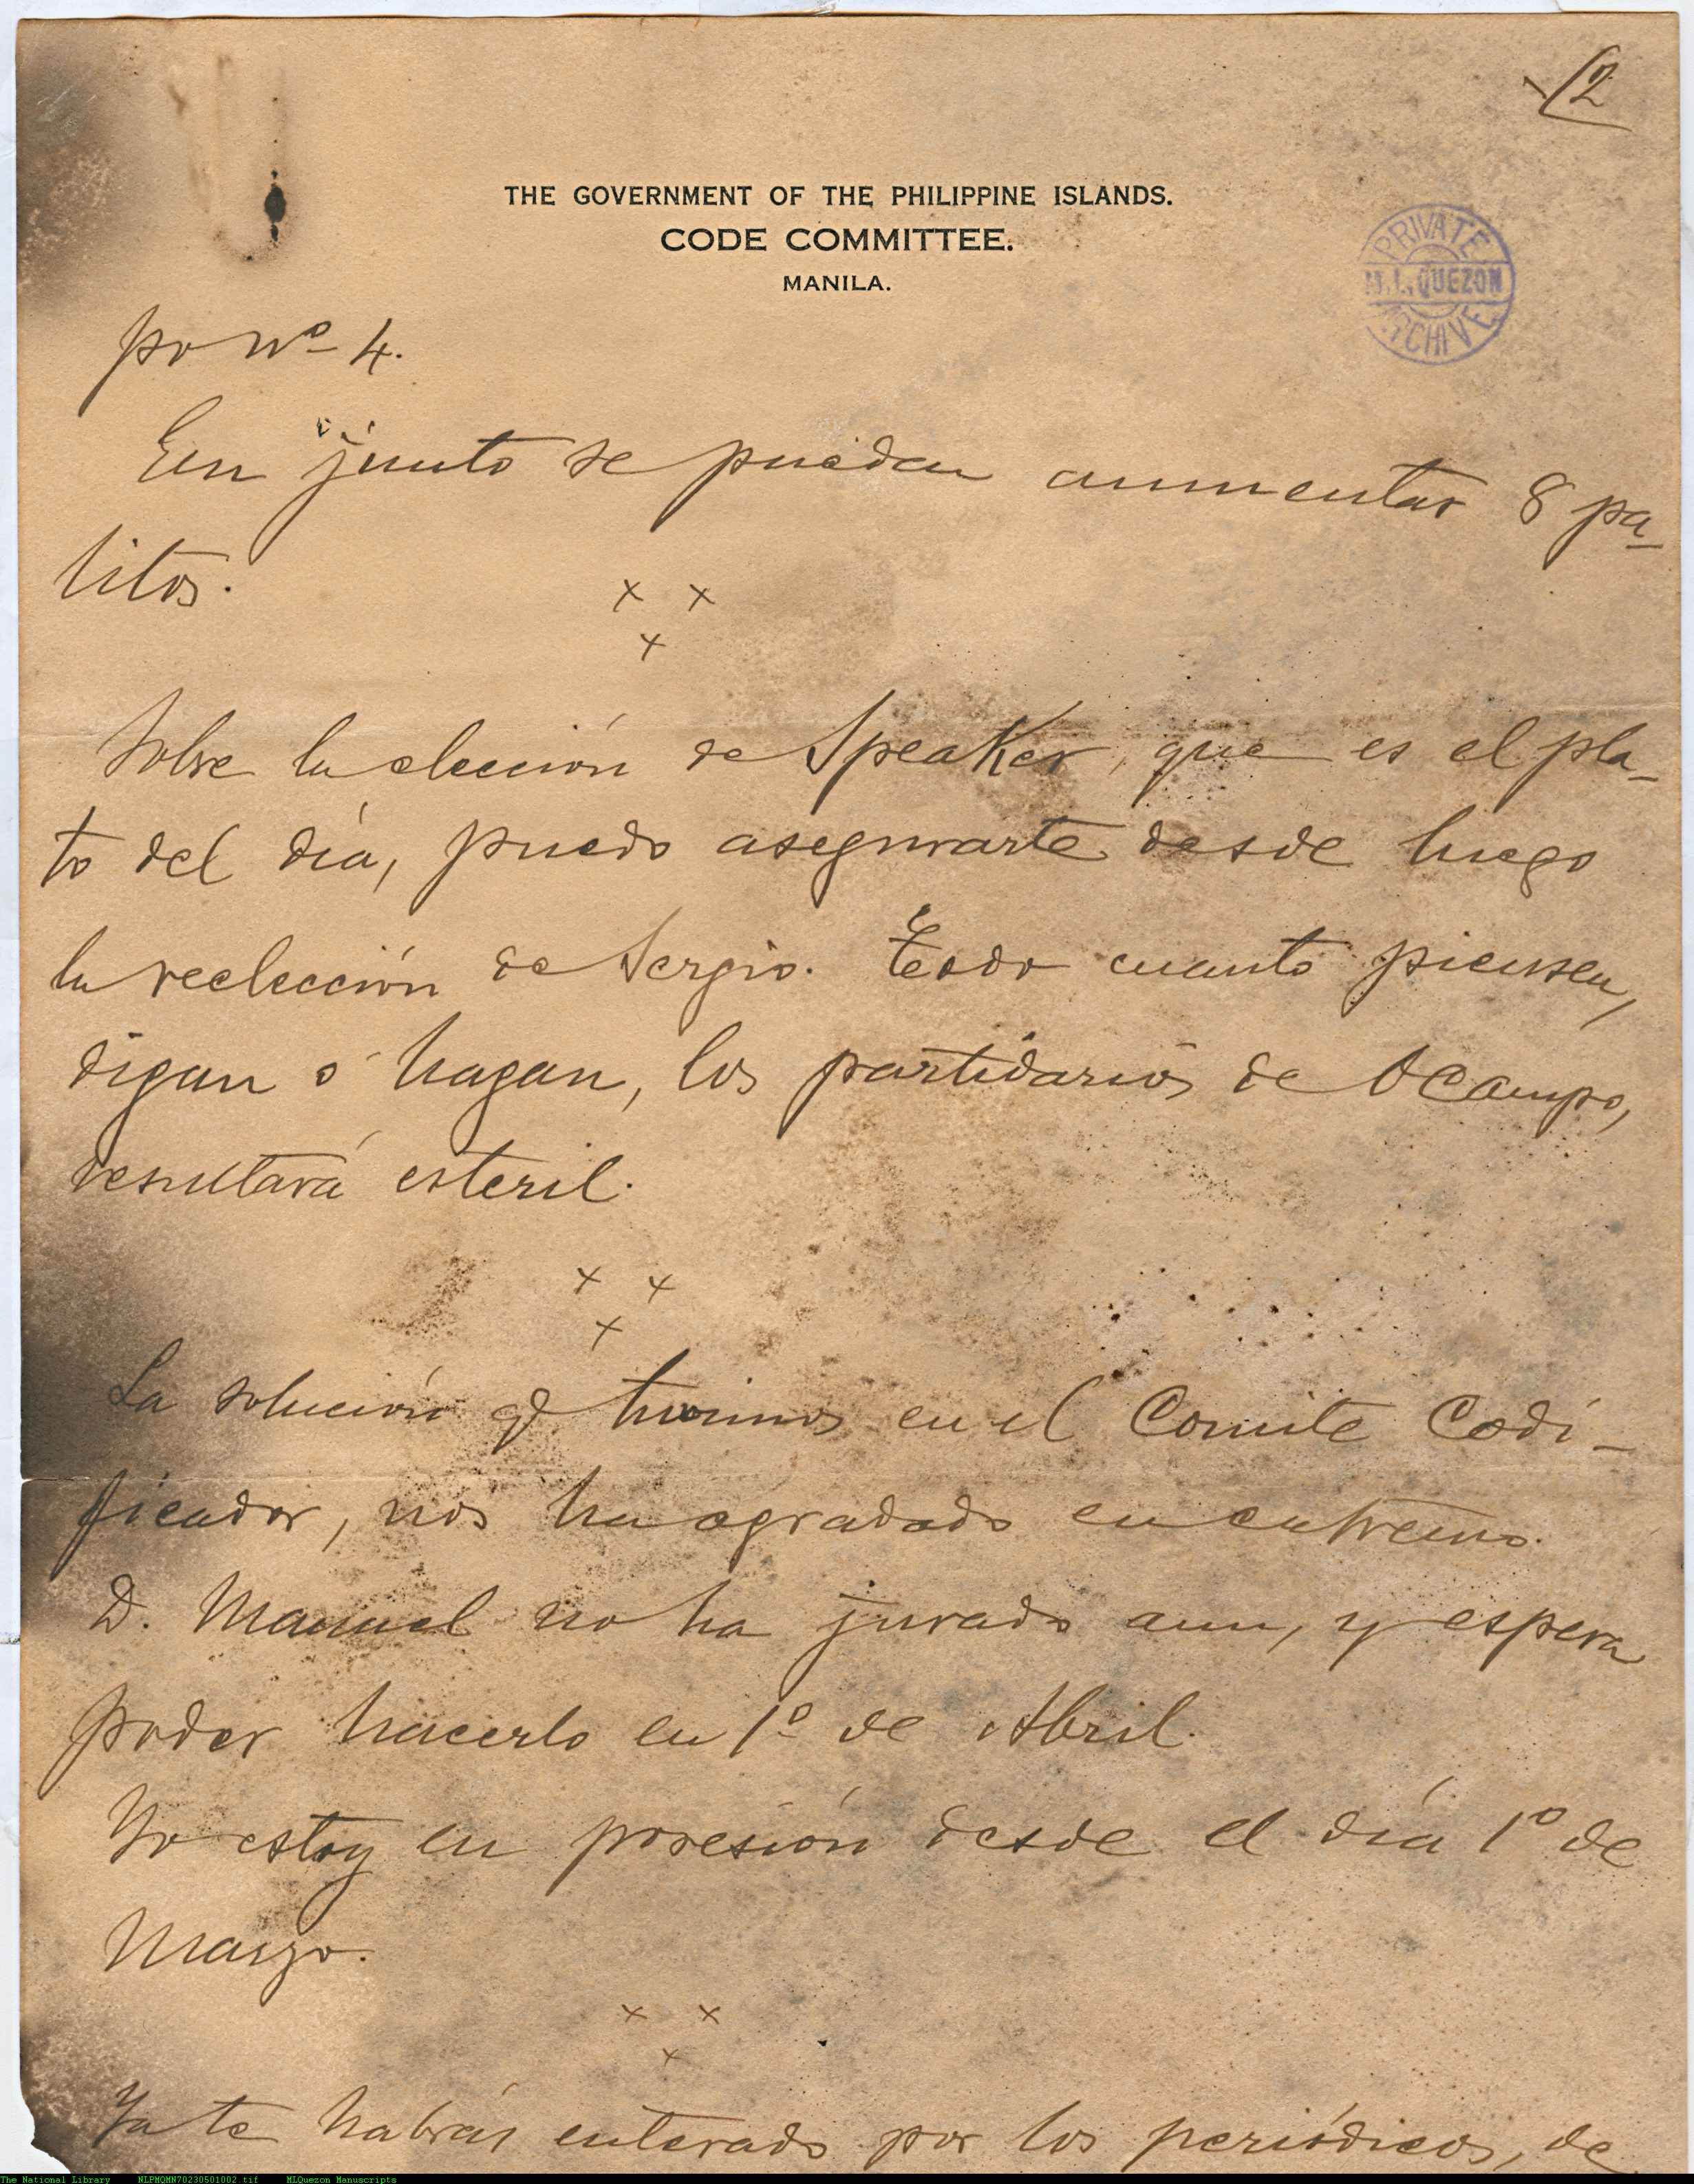 (2
THE GOVERNMENT OF THE PHILIPPINE ISLANDS.
CODE COMMITTEE.
MANILA.
PRIVATE
M. L. QUEZON
ARCHIVE
po nº 4.
En junto se puedan aumentar 8 pa-
litos.
x x
x
Sobre la elección de Speaker, que es el pla-
to del día, puedo asegurarte desde luego
la reelección de Sergio. Todo cuanto piensen,
digan ó hagan, los partidarios de Ocampo,
resultará esteril.
x x
x
La solución q tuvimos en el Comite Codi-
ficador, nos ha agradado en extremo.
D. Manuel no ha jurado aun, y espera
poder hacerlo en 1º de Abril.
Yo estoy en posesión desde el día 1º de
Marzo.
x x
x
Ya te habrás enterado por los periódicos, de
The National Library NLPMQMN70230501002.tif MLQuezon Manuscripts